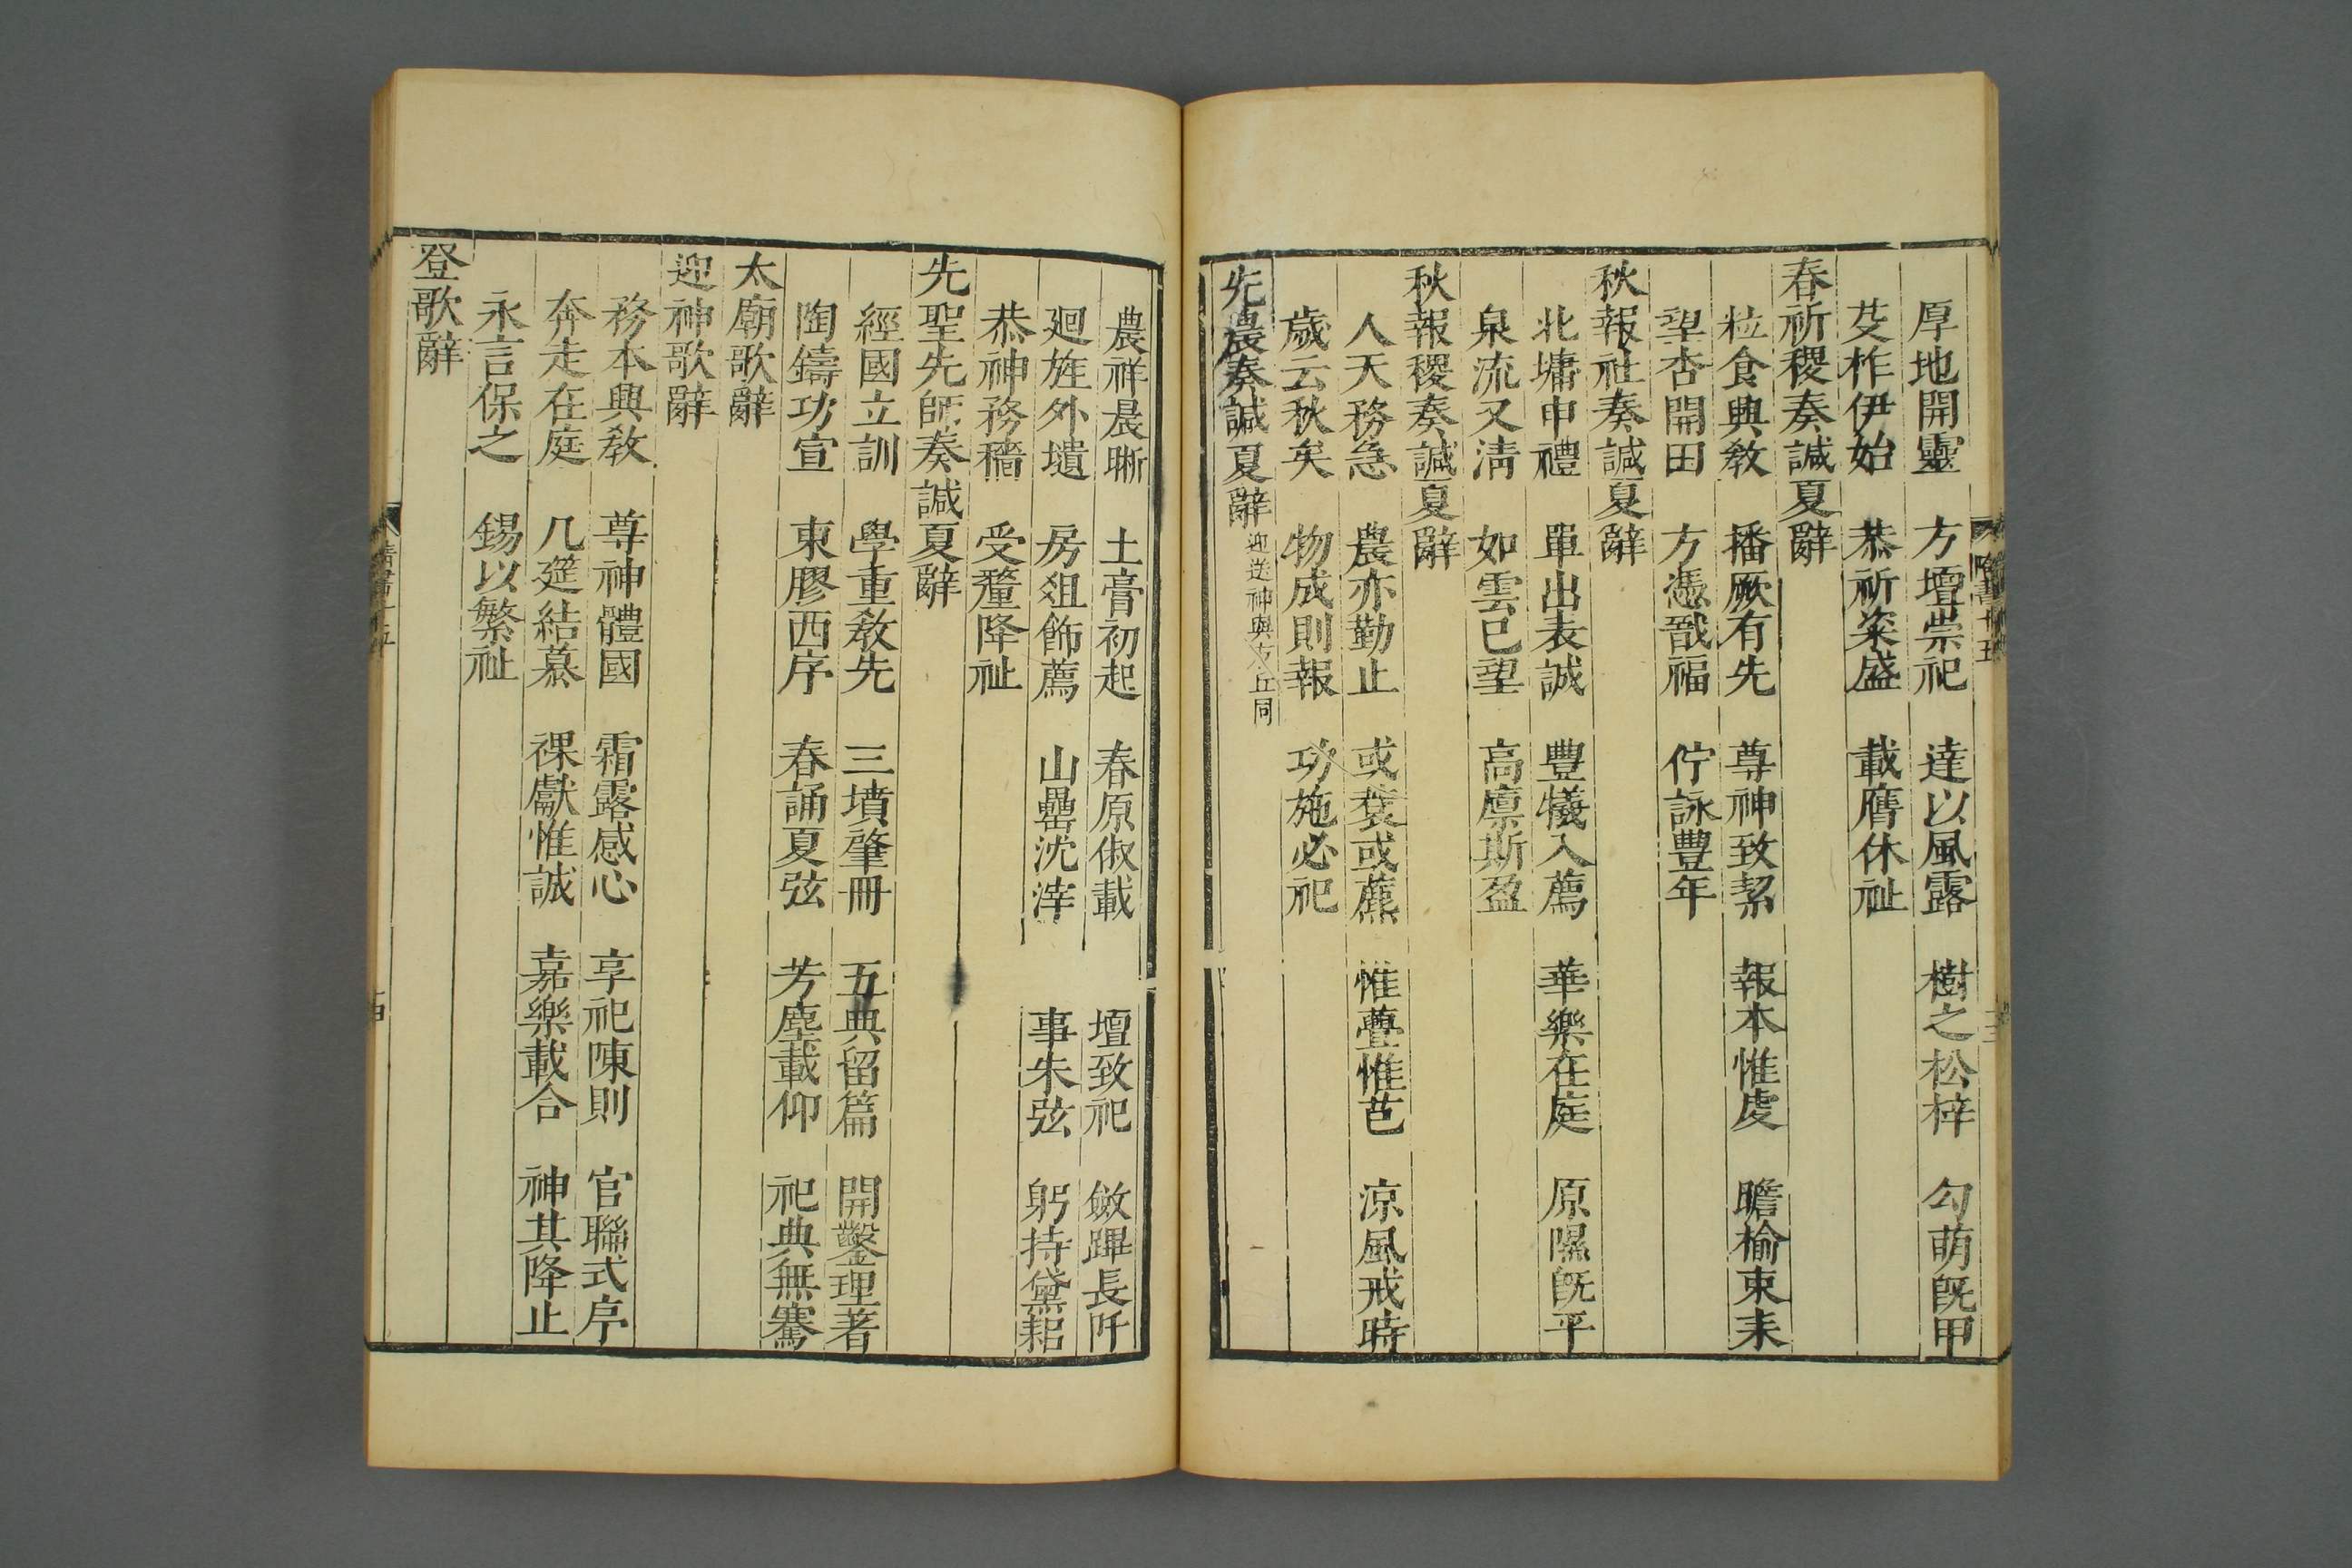 厚地開靈　方壇崇祀　達以風露　樹之松梓　勾萌旣甲
芟柞伊始　恭祈粢盛　載膺休祉
春祈稷奏諴夏辭
粒食興敎　播厥有先　尊神致絜　報本惟虔　瞻榆束耒
望杏開田　方憑戬福　佇詠豐年
秋報社奏諴夏辭
北墉申禮　單出表誠　豐犧入薦　華樂在庭　原隰旣平
泉流又淸　如雲已望　高廩斯盈
秋報稷奏諴夏辭
人天務急　農亦勤止　或蔉或藨　惟虋惟芑　涼風戒時
歲云秋矣　物成則報　功施必祀
先農奏諴夏辭迎送神與方丘同
農祥晨晣　土膏初起　春原俶載　壇致祀　斂蹕長阡
廻旌外壝　房俎飾薦　山罍沈滓　事朱弦　躬持黛耜
恭神務穡　受釐降祉
先聖先師奏諴夏辭
經國立訓　學重敎先　三墳肇冊　五典留篇　開鑿理著
陶鑄功宣　東膠西序　春誦夏弦　芳塵載仰　祀典無騫
太廟歌辭
迎神歌辭
務本興敎　尊神體國　霜露感心　享祀陳則　官聯式序
奔走在庭　几筵結慕　祼獻惟誠　嘉樂載合　神其降止
永言保之　錫以繁祉
登歌辭